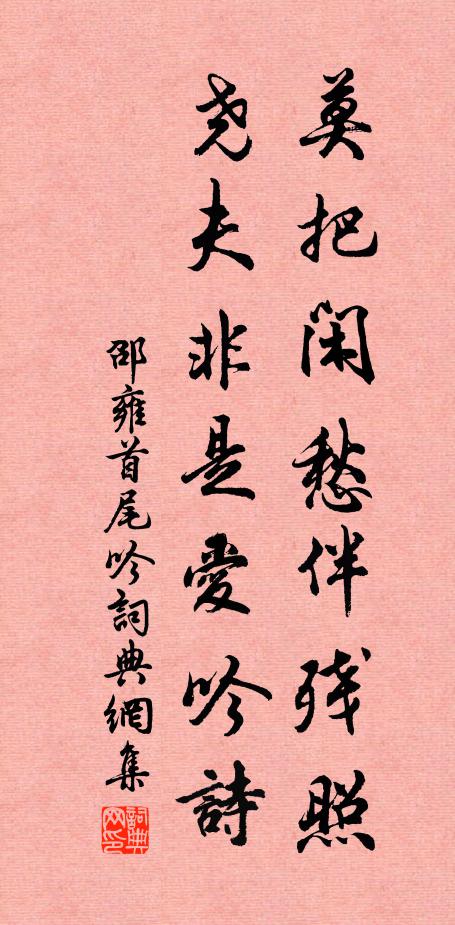 莫把闲愁伴残照
尧夫非是爱吟詩
邵雍首尾吟詞典網集
詞典网印